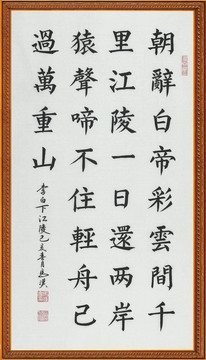 朝辭白帝彩雲間千
里江陵一日還两岸
猿聲啼不住輕舟已
過萬重山
李白下江陵己亥春月